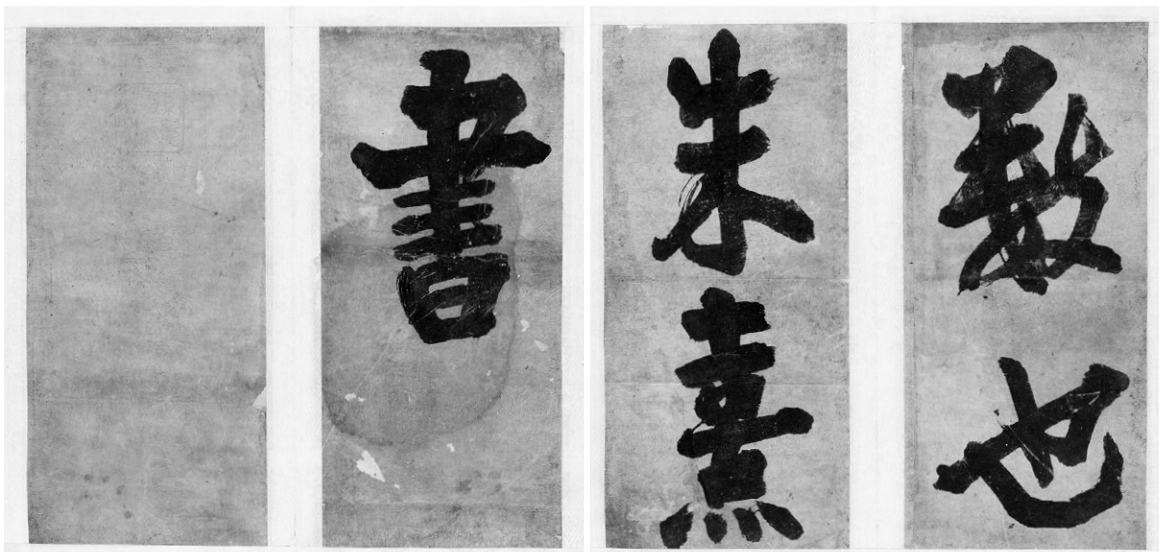 數也
朱熹
書